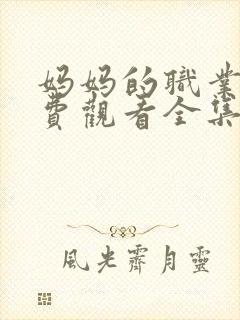 妈妈的職業
費觀看全集
風光霽月靈